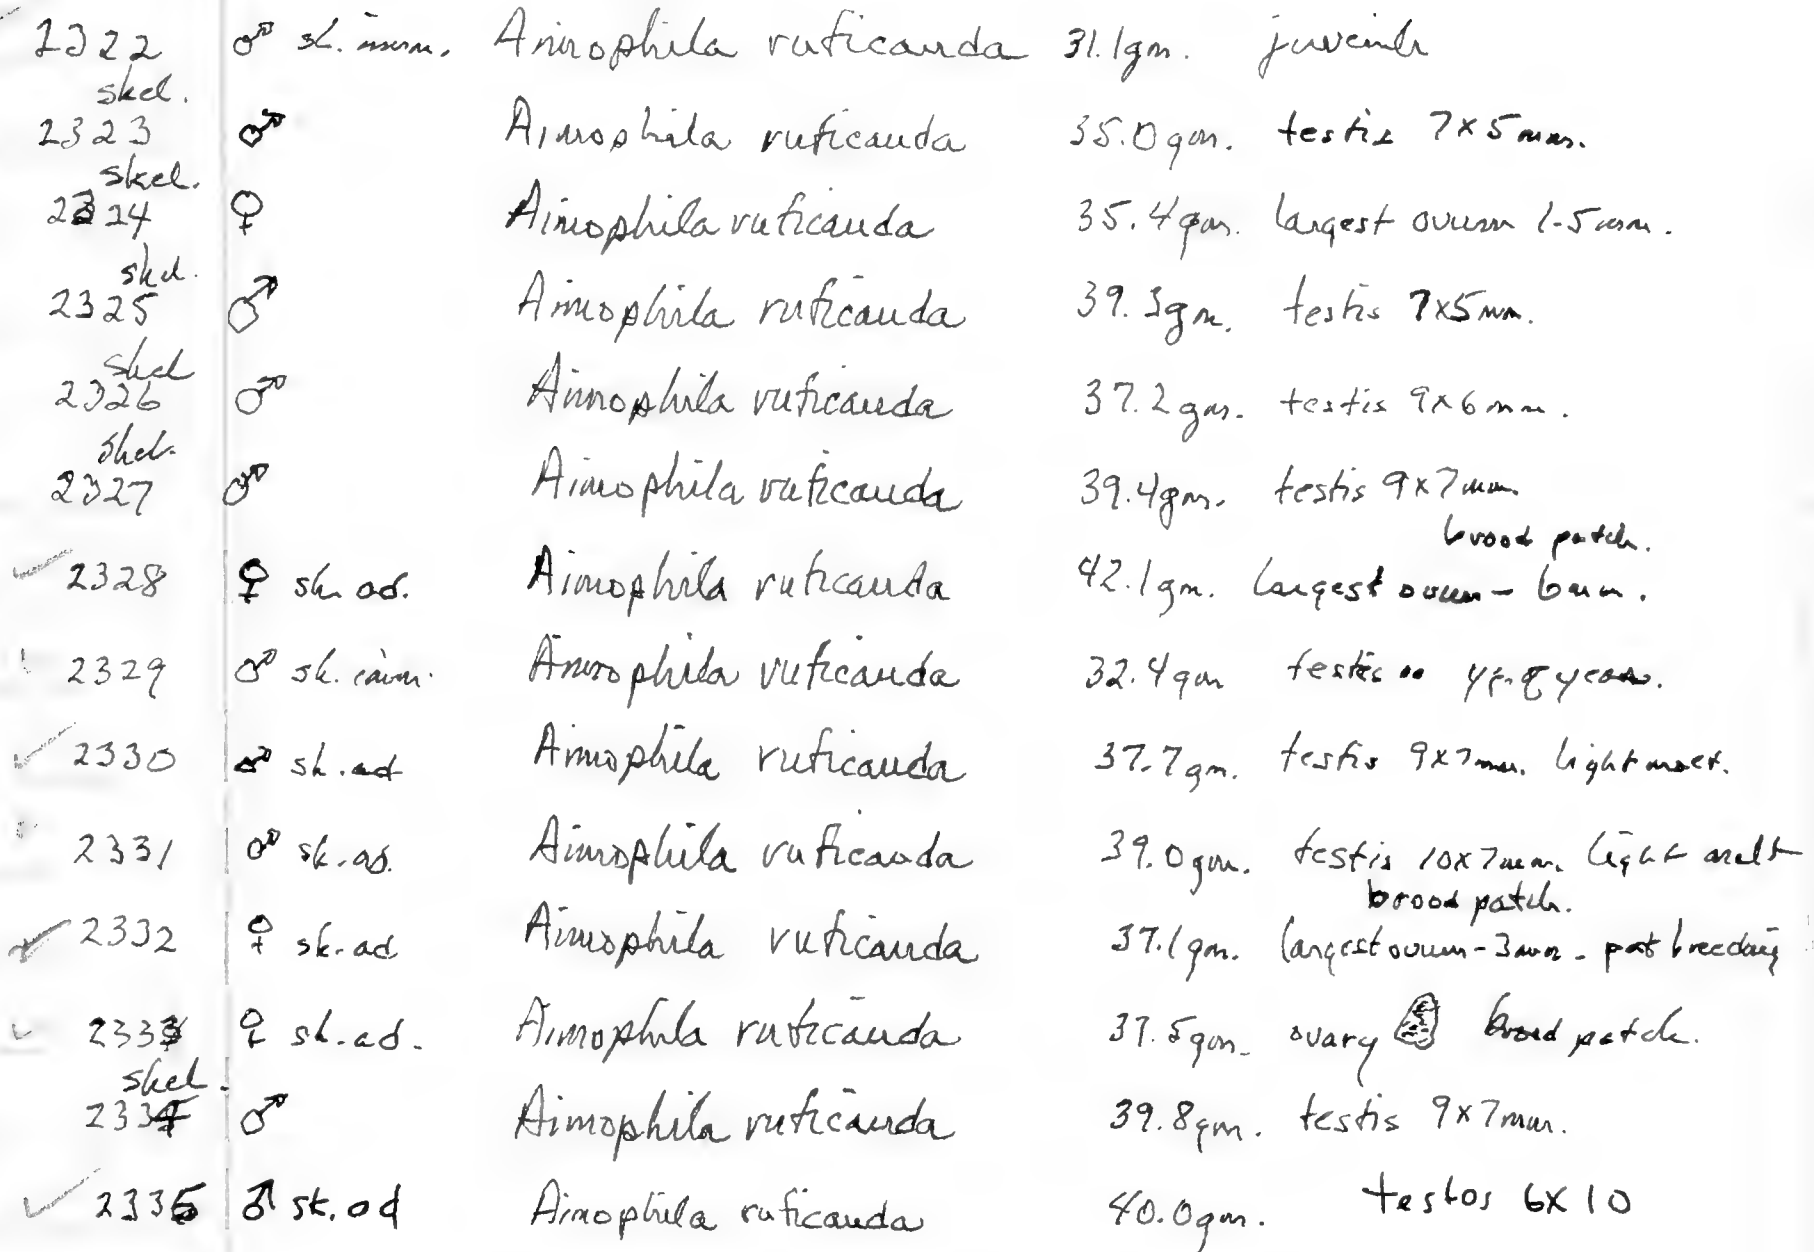 2322 ♂ sk. imm. Aimophila ruficauda 31.1gm. juvenile
skel.
2323 ♂ Aimophila ruficauda 35.0gm. testis 7x5mm.
skel.
2324 ♀ Aimophila ruficauda 35.4gm. largest ovum 1.5mm.
skel.
2325 ♂ Aimophila ruficauda 39.3gm. testis 7x5mm.
skel
2326 ♂ Aimophila ruficauda 37.2gm. testis 9x6mm.
skel.
2327 ♂ Aimophila ruficauda 39.4gm. testis 9x7mm
brood patch.
2328 ♀ sk. ad. Aimophila ruficauda 42.1gm. largest ovum - 6mm.
2329 ♂ sk. imm. Aimophila ruficauda 32.4gm testes yg. of year.
2330 ♂ sk. ad Aimophila ruficauda 37.7gm. testis 9x7mm. light molt.
2331 ♂ sk. ad. Aimophila ruficauda 39.0gm. testis 10x7mm. light molt
brood patch.
2332 ♀ sk. ad Aimophila ruficauda 37.1gm. largest ovum - 3mm - post breeding
2333 ♀ sk. ad. Aimophila ruficauda 37.5gm. ovary brood patch.
skel.
2334 ♂ Aimophila ruficauda 39.8gm. testis 9x7mm.
2335 ♂ sk. ad Aimophila ruficauda 40.0gm. testos 6X10